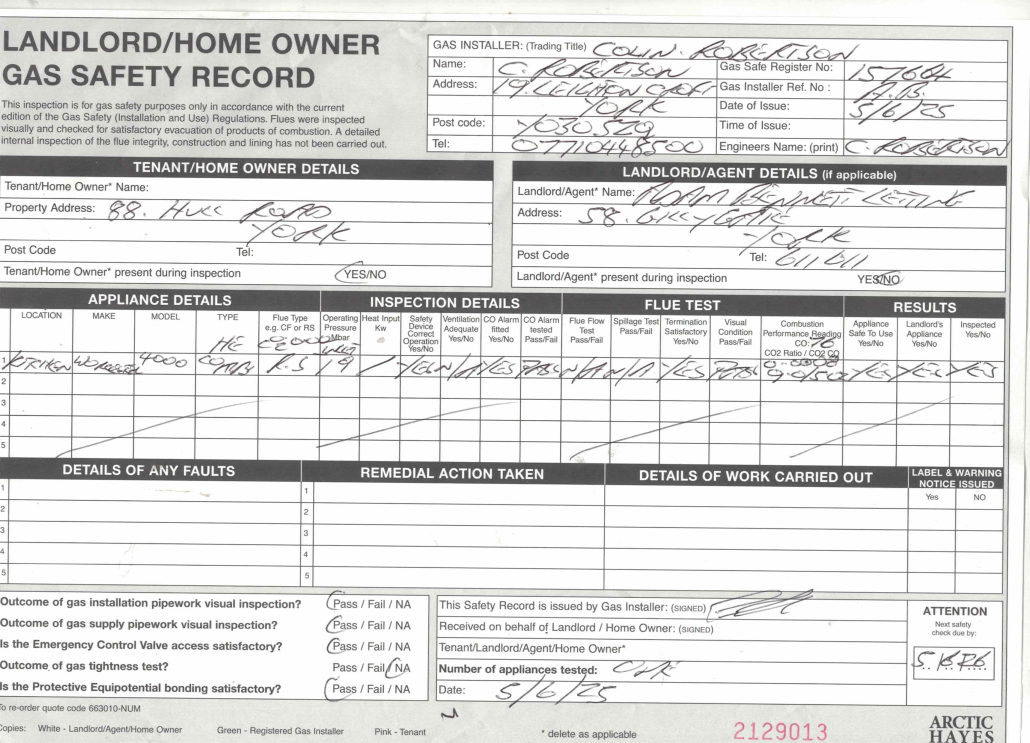 LANDLORD/HOME OWNER
GAS SAFETY RECORD
This inspection is for gas safety purposes only in accordance with the current
edition of the Gas Safety (Installation and Use) Regulations. Flues were inspected
visually and checked for satisfactory evacuation of products of combustion. A detailed
internal inspection of the flue integrity, construction and lining has not been carried out.
GAS INSTALLER: (Trading Title) COLIN. ROBERTSON
Name: C. ROBERTSON
Gas Safe Register No: 157664
Address: 19. LEIGHTON CROFT
Gas Installer Ref. No : A.B.
YORK
Date of Issue: 5/6/25
Post code: YO30.5ZQ
Time of Issue:
Tel: 07710448500
Engineers Name: (print) C. ROBERTSON
TENANT/HOME OWNER DETAILS
Tenant/Home Owner* Name:
Property Address: 88. HULL ROAD
YORK
Post Code Tel:
Tenant/Home Owner* present during inspection YES/NO
LANDLORD/AGENT DETAILS (if applicable)
Landlord/Agent* Name: ADAM BENNETT LETTING
Address: 58. GILLYGATE
YORK
Post Code Tel: 611611
Landlord/Agent* present during inspection YES/NO
APPLIANCE DETAILS INSPECTION DETAILS FLUE TEST RESULTS
LOCATION
MAKE
MODEL
TYPE
Flue Type e.g. CF or RS
Operating Pressure Mbar
Heat Input Kw
Safety Device Correct Operation Yes/No
Ventilation Adequate Yes/No
CO Alarm fitted Yes/No
CO Alarm tested Pass/Fail
Flue Flow Test Pass/Fail
Spillage Test Pass/Fail
Termination Satisfactory Yes/No
Visual Condition Pass/Fail
Combustion Performance Reading CO: 76 CO2 Ratio / CO2 CO
Appliance Safe To Use Yes/No
Landlord's Appliance Yes/No
Inspected Yes/No
HE
1 KITCHEN WORCESTER 4000 COMB R.S 19 / YES N/A YES PASS N/A N/A YES PASS YES YES YES
2
3
4
5
DETAILS OF ANY FAULTS REMEDIAL ACTION TAKEN DETAILS OF WORK CARRIED OUT LABEL & WARNING NOTICE ISSUED
Yes NO
1 1
2 2
3 3
4 4
5 5
Outcome of gas installation pipework visual inspection? Pass / Fail / NA
Outcome of gas supply pipework visual inspection? Pass / Fail / NA
Is the Emergency Control Valve access satisfactory? Pass / Fail / NA
Outcome of gas tightness test? Pass / Fail / NA
Is the Protective Equipotential bonding satisfactory? Pass / Fail / NA
This Safety Record is issued by Gas Installer: (SIGNED)
Received on behalf of Landlord / Home Owner: (SIGNED)
Tenant/Landlord/Agent/Home Owner*
Number of appliances tested: ONE
Date: 5/6/25
ATTENTION
Next safety
check due by:
5/6/26
To re-order quote code 663010-NUM
Copies: White - Landlord/Agent/Home Owner Green - Registered Gas Installer Pink - Tenant
* delete as applicable
2129013
ARCTIC
HAYES